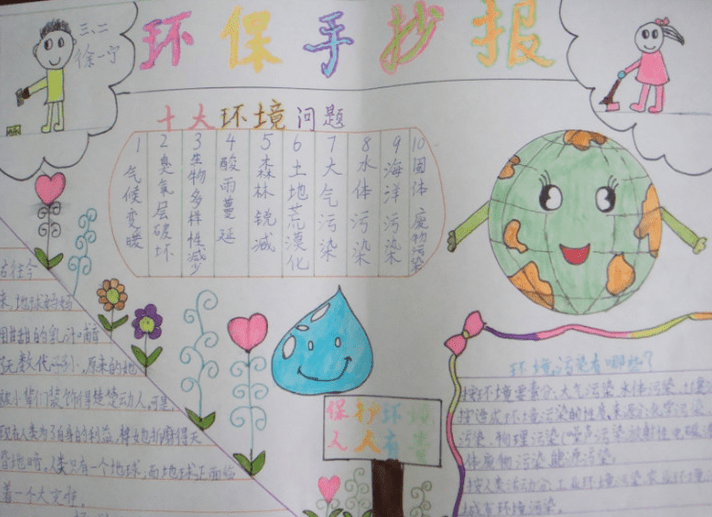 环保手抄报
三、二
徐一宁
十大环境问题
1 气候变暖
2 臭氧层破坏
3 生物多样性减少
4 酸雨蔓延
5 森林锐减
6 土地荒漠化
7 大气污染
8 水体污染
9 海洋污染
10 固体废物污染
古往今
来,地球妈妈
用甜甜的乳汁哺育
了无数代子孙。原来的她
被小辈们装饰得楚楚动人。可是,
现在人类为了自身的利益,将她折磨得天
昏地暗。人类只有一个地球;而地球正面临
着一个大灾难。
保护环境
人人有责
环境污染有哪些?
按环境要素分:大气污染、水体污染、土壤
按造成环境污染的性质、来源分:化学污染、
污染、物理污染(噪声污染、放射性、电磁波
体废物污染、能源污染。
按人类活动分:工业环境污染、农业环境
城市环境污染。